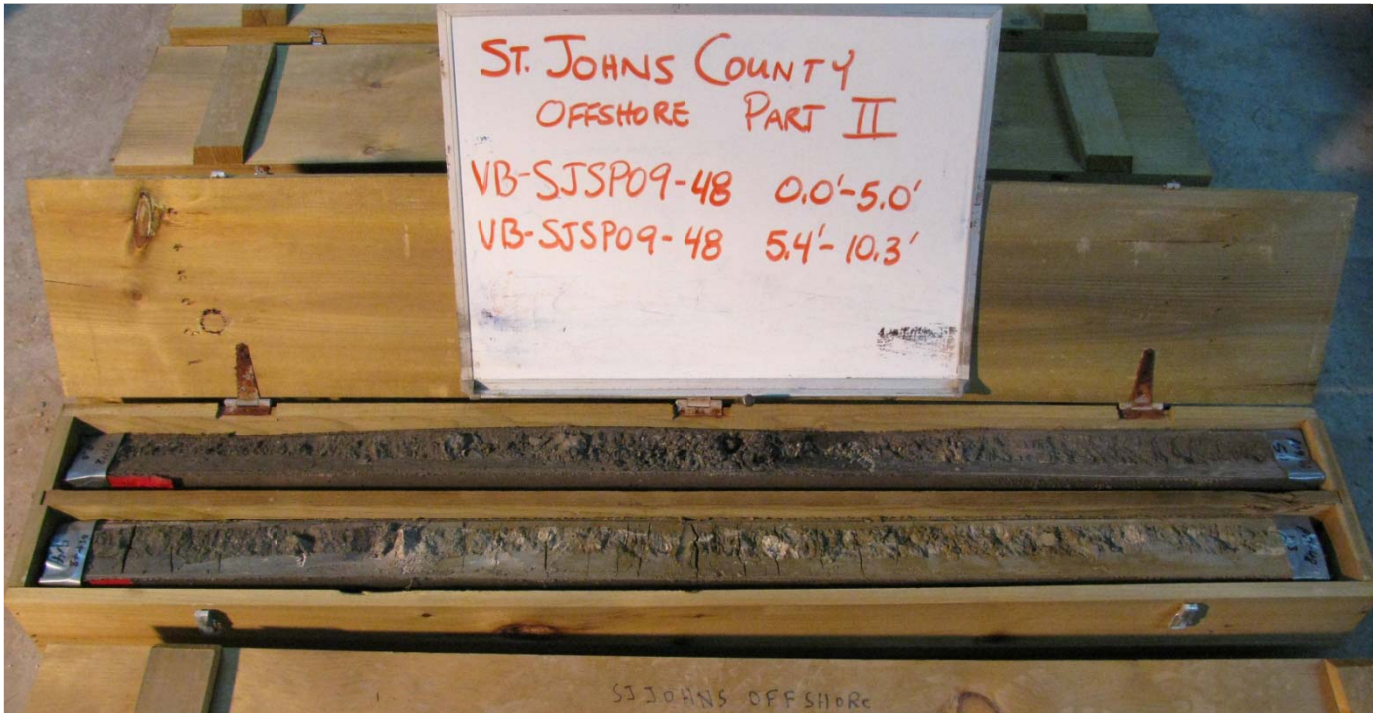 ST. JOHNS COUNTY
OFFSHORE PART II
VB-SJSP09-48 0.0'-5.0'
VB-SJSP09-48 5.4'-10.3'
SJ JOHNS OFFSHORE